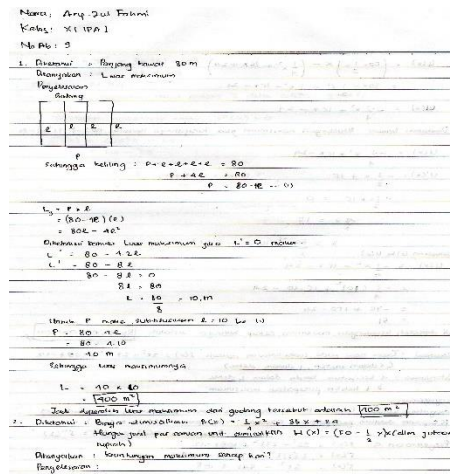 Nama : Arip Zul Fahmi
Kelas : XI IPA 1
No Ab : 9
1. Diketahui : Panjang kawat 80 m
Ditanyakan : Luas maksimum
Penyelesaian
Gudang
l l l l
P
Sehingga keliling : P + l + l + l + l = 80
P + 4l = 80
P = 80 - 4l ... (1)
L = P × l
= (80 - 4l) (l)
= 80l - 4l²
Diketahui bahwa Luas maksimum jika L' = 0 maka
L' = 80 - 4.2l
L' = 80 - 8l
80 - 8l = 0
8l = 80
l = 80/8 = 10 m
Untuk P maka substitusikan l = 10 ke (1)
P = 80 - 4l
= 80 - 4.10
= 40 m
Sehingga luas maksimumnya
L = 40 × 10
= 400 m²
Jadi diperoleh luas maksimum dari gudang tersebut adalah 400 m²
2. Diketahui : Biaya B(x) = 1/4 x² + 35x + 25
Harga jual per satuan unit (50 - 1/2 x) (dlm jutaan rupiah)
Ditanyakan : keuntungan maksimum
Penyelesaian :